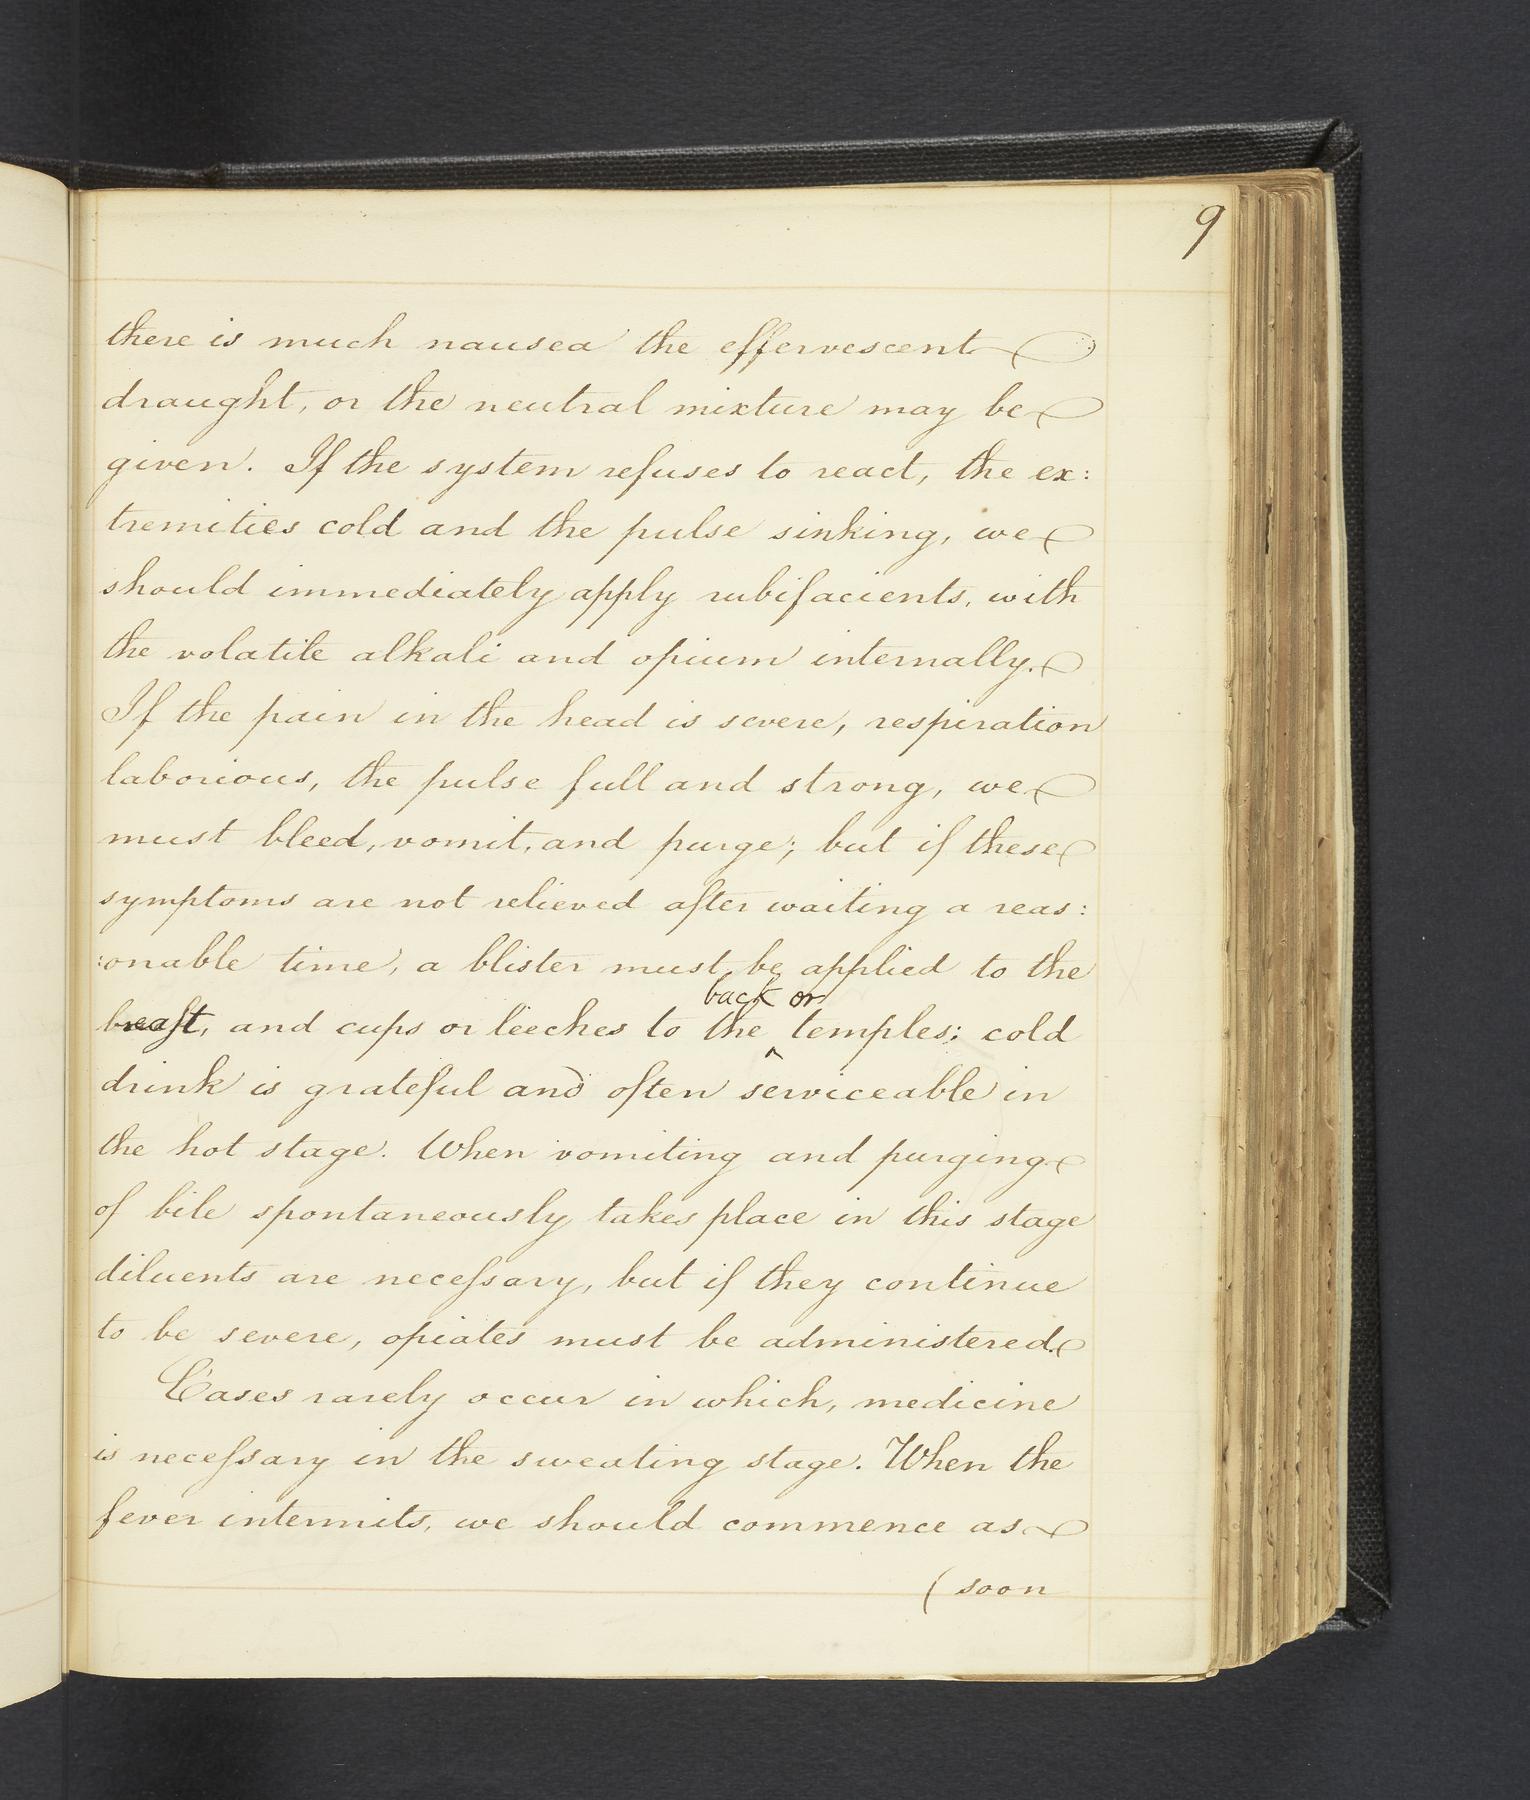 9
there is much nausea the effervescent
draught, or the neutral mixture may be
given. If the system refuses to react, the ex:
tremities cold and the pulse sinking, we
should immediately apply rubifacients, with
the volatile alkali and opium internally.
If the pain in the head is severe, respiration
laborious, the pulse full and strong, we
must bleed, vomit, and purge; but if these
symptoms are not relieved after waiting a reas:
:onable time, a blister must be applied to the
back or
breast, and cups or leeches to the ^ temples; cold
drink is grateful and often serviceable in
the hot stage. When vomiting and purging
of bile spontaneously takes place in this stage
diluents are necessary, but if they continue
to be severe, opiates must be administered.
Cases rarely occur in which, medicine
is necessary in the sweating stage. When the
fever intermits, we should commence as
( soon